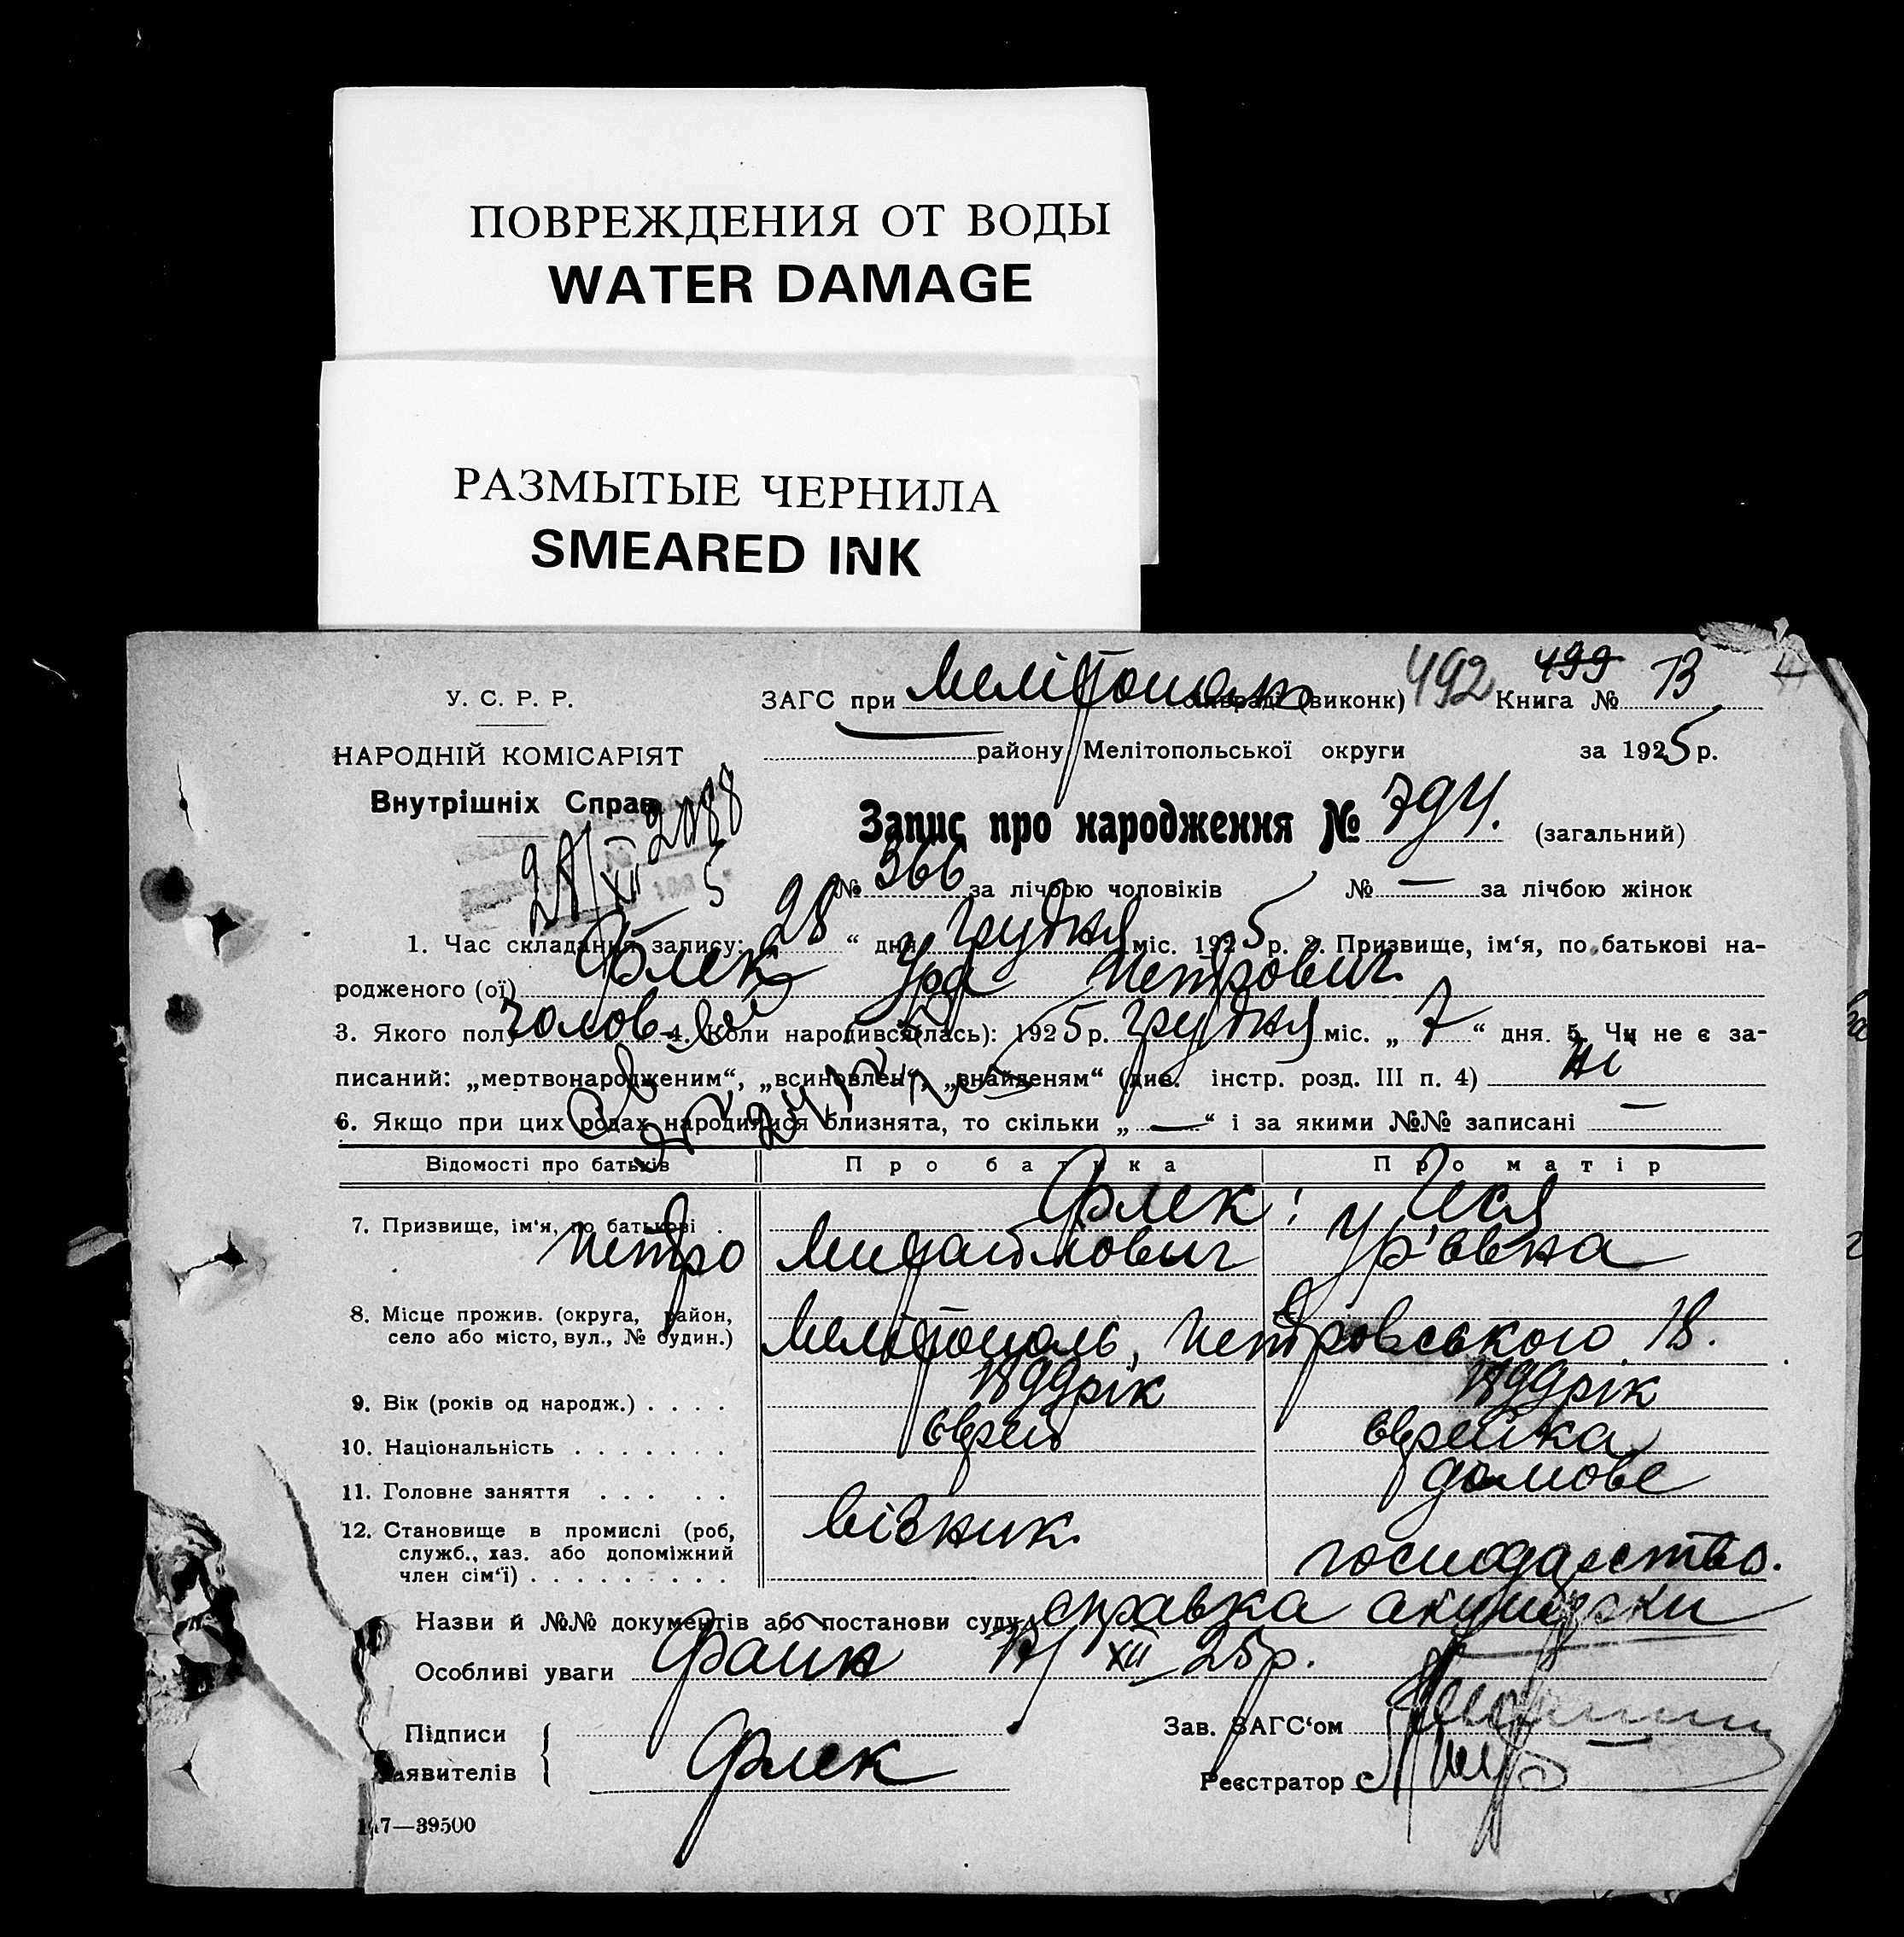 ПОВРЕЖДЕНИЯ ОТ ВОДЫ
WATER DAMAGE
РАЗМЫТЫЕ ЧЕРНИЛА
SMEARED INK
У. С. Р. Р.
НАРОДНІЙ КОМІСАРІЯТ
Внутрішніх Справ
28/XII 2088
5
ЗАГС при Мелітопол (виконк) 492 499 Книга № 13
району Мелітопольської округи за 1925 р.
Запис про народження № 794. (загальний)
№ 366 за лічбою чоловіків № — за лічбою жінок
1. Час складання запису: 28 “ дня грудня міс. 1925 р. 2. Призвище, ім‘я, по батькові на-
родженого (ої) Флек Петрович
3. Якого полу чолов 4. Коли народився(лась): 1925 р. грудня міс. „ 7 “ дня. 5. Чи не є за-
писаний: „мертвонародженим“, „всиновлен“, „знайденям“ (див. інстр. розд. III п. 4) ні
6. Якщо при цих родах народилися близнята, то скільки „ — “ і за якими №№ записані —
Відомості про батьків Про батька Про матір
7. Призвище, ім‘я, по батькові Флек:
Петро Михайлович Ур'євна
8. Місце прожив. (округа, район,
село або місто, вул., № будин.) Мелітополь, Петровського 18.
9. Вік (років од народж.) . . . . 1899 рік 1899 рік
10. Національність . . . . . . . єврей єврейка
11. Головне заняття . . . . . домове
12. Становище в промислі (роб, візник
служб., хаз. або допоміжний господарство.
член сім‘ї) . . . . . . . . .
Назви й №№ документів або постанови суду справка акушерки
Особливі уваги Фаин XII 25 р.
Підписи Зав. ЗАГС‘ом
аявителів Флек Реєстратор
7—39500